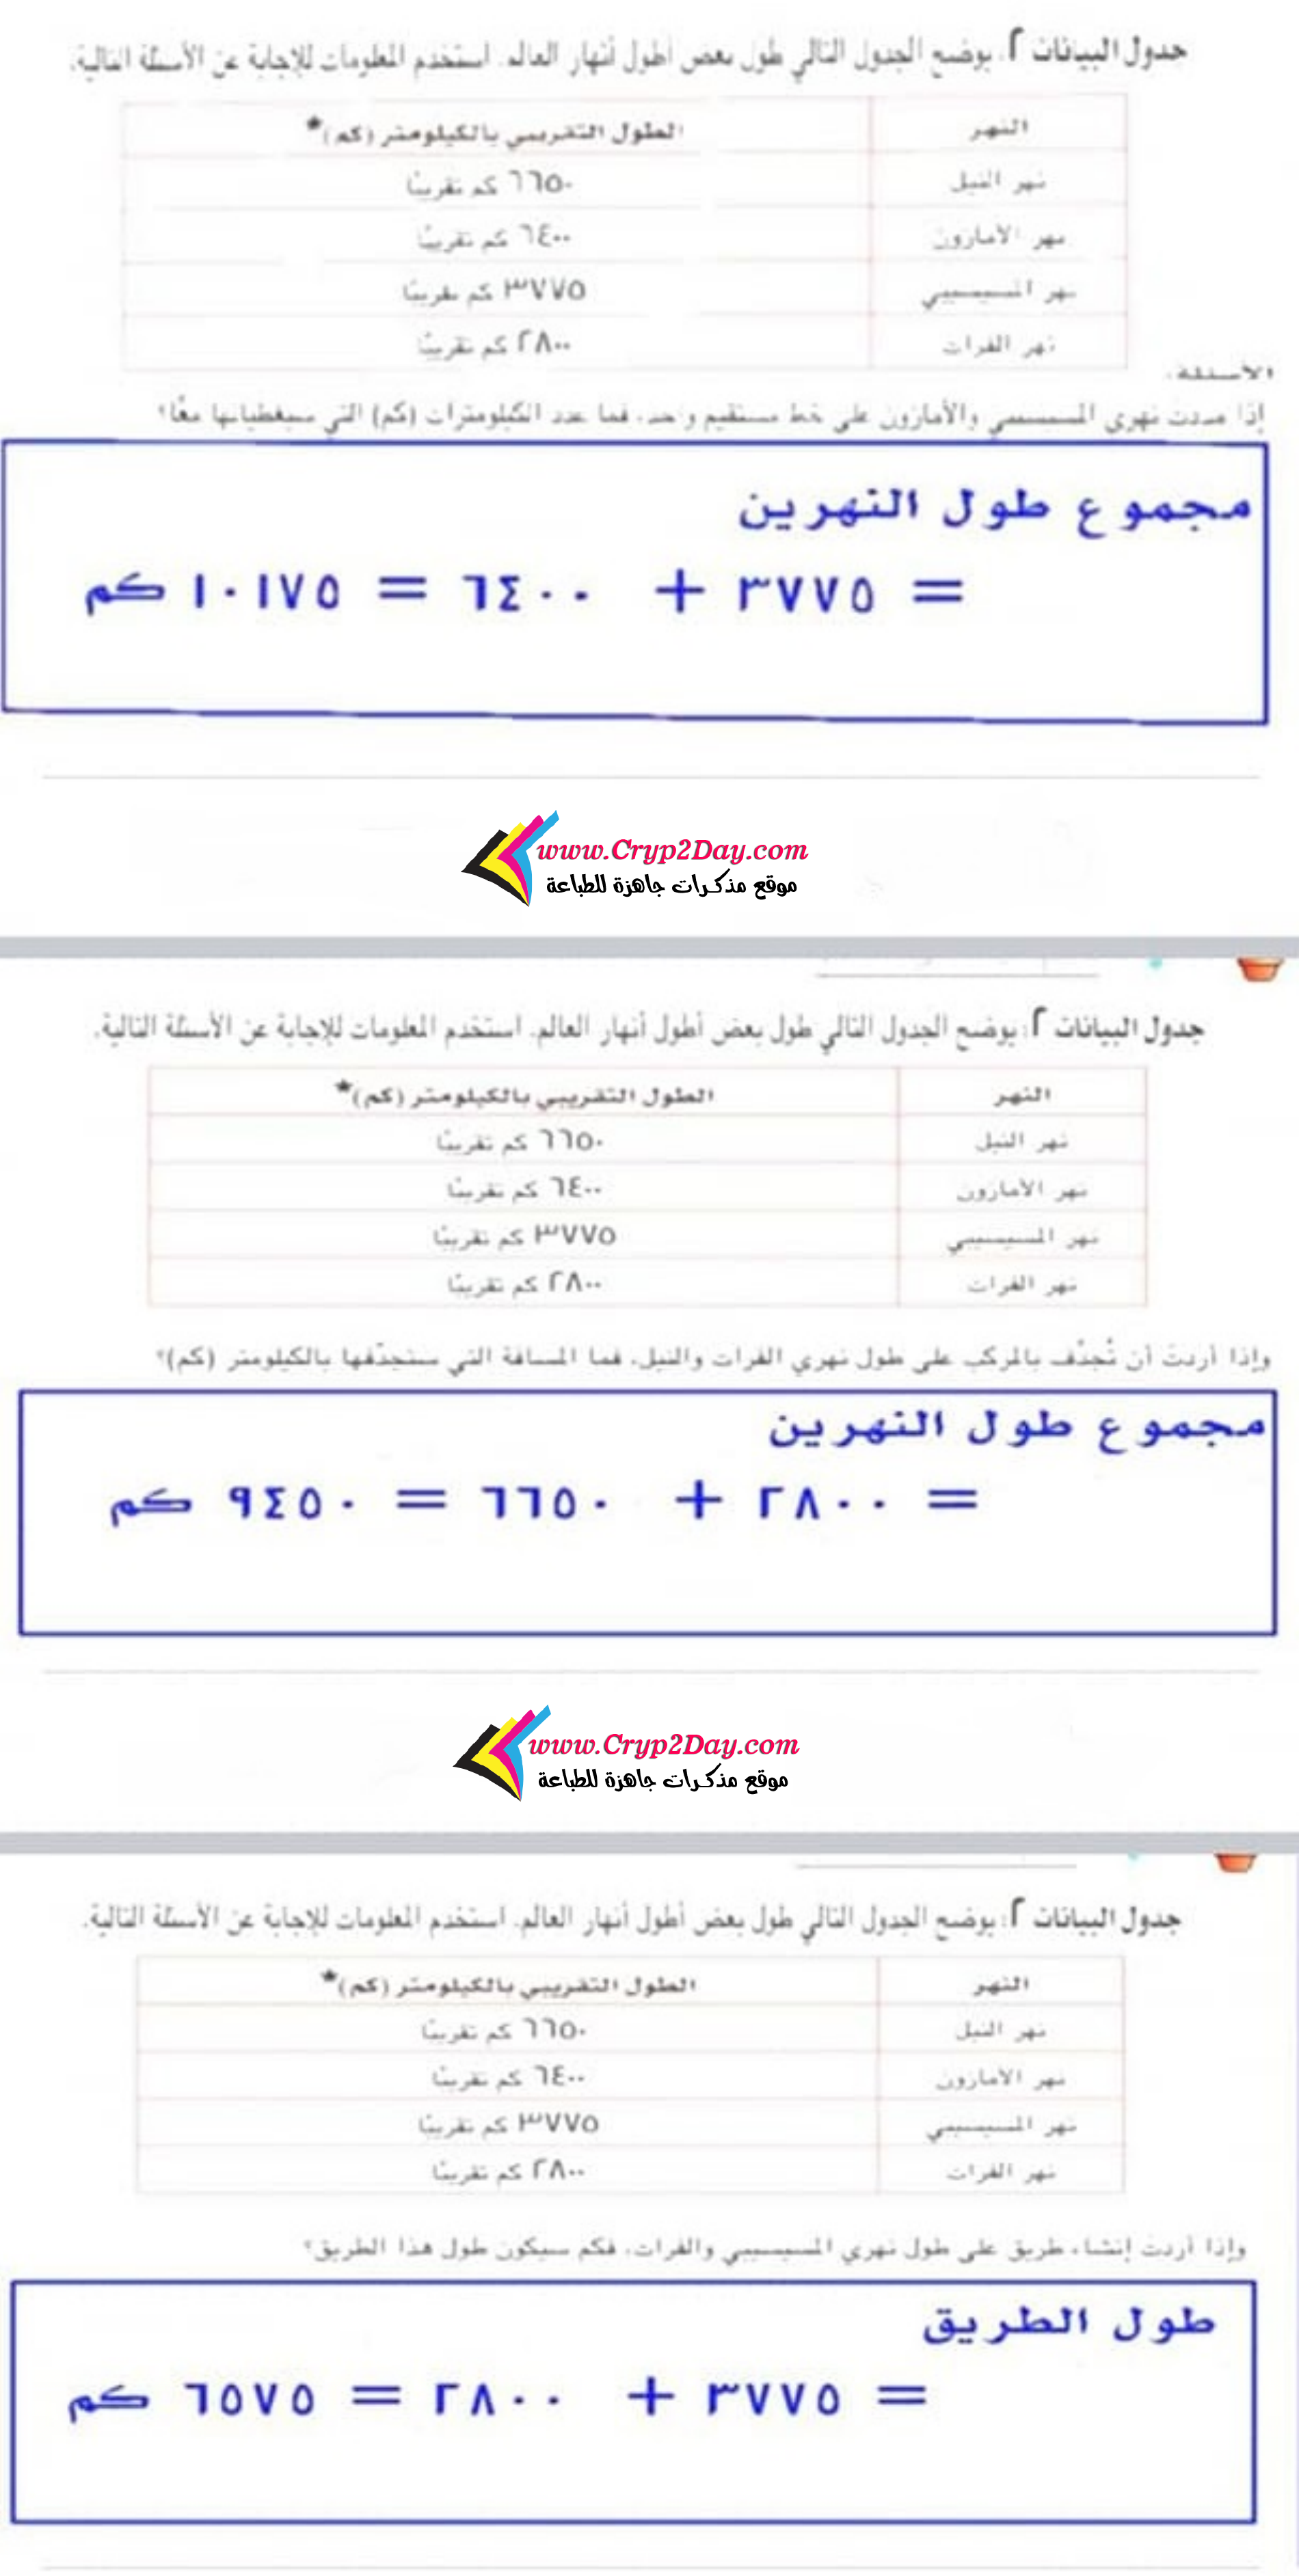 جدول البيانات ٢: يوضح الجدول التالي طول بعض أطول أنهار العالم. استخدم المعلومات للإجابة عن الأسئلة التالية.
النهر الطول التقريبي بالكيلومتر (كم)*
نهر النيل ٦٦٥٠ كم تقريبًا
نهر الأمازون ٦٤٠٠ كم تقريبًا
نهر المسيسيبي ٣٧٧٥ كم تقريبًا
نهر الفرات ٢٨٠٠ كم تقريبًا
الأسئلة:
إذا مددت نهري المسيسيبي والأمازون على خط مستقيم واحد، فما عدد الكيلومترات (كم) التي سيغطيانها معًا؟
مجموع طول النهرين
= ٣٧٧٥ + ٦٤٠٠ = ١٠١٧٥ كم
www.Cryp2Day.com
موقع مذكرات جاهزة للطباعة
جدول البيانات ٢: يوضح الجدول التالي طول بعض أطول أنهار العالم. استخدم المعلومات للإجابة عن الأسئلة التالية.
النهر الطول التقريبي بالكيلومتر (كم)*
نهر النيل ٦٦٥٠ كم تقريبًا
نهر الأمازون ٦٤٠٠ كم تقريبًا
نهر المسيسيبي ٣٧٧٥ كم تقريبًا
نهر الفرات ٢٨٠٠ كم تقريبًا
وإذا أردت أن تُجدِّف بالمركب على طول نهري الفرات والنيل، فما المسافة التي ستجدّفها بالكيلومتر (كم)؟
مجموع طول النهرين
= ٢٨٠٠ + ٦٦٥٠ = ٩٤٥٠ كم
www.Cryp2Day.com
موقع مذكرات جاهزة للطباعة
جدول البيانات ٢: يوضح الجدول التالي طول بعض أطول أنهار العالم. استخدم المعلومات للإجابة عن الأسئلة التالية.
النهر الطول التقريبي بالكيلومتر (كم)*
نهر النيل ٦٦٥٠ كم تقريبًا
نهر الأمازون ٦٤٠٠ كم تقريبًا
نهر المسيسيبي ٣٧٧٥ كم تقريبًا
نهر الفرات ٢٨٠٠ كم تقريبًا
وإذا أردت إنشاء طريق على طول نهري المسيسيبي والفرات، فكم سيكون طول هذا الطريق؟
طول الطريق
= ٣٧٧٥ + ٢٨٠٠ = ٦٥٧٥ كم